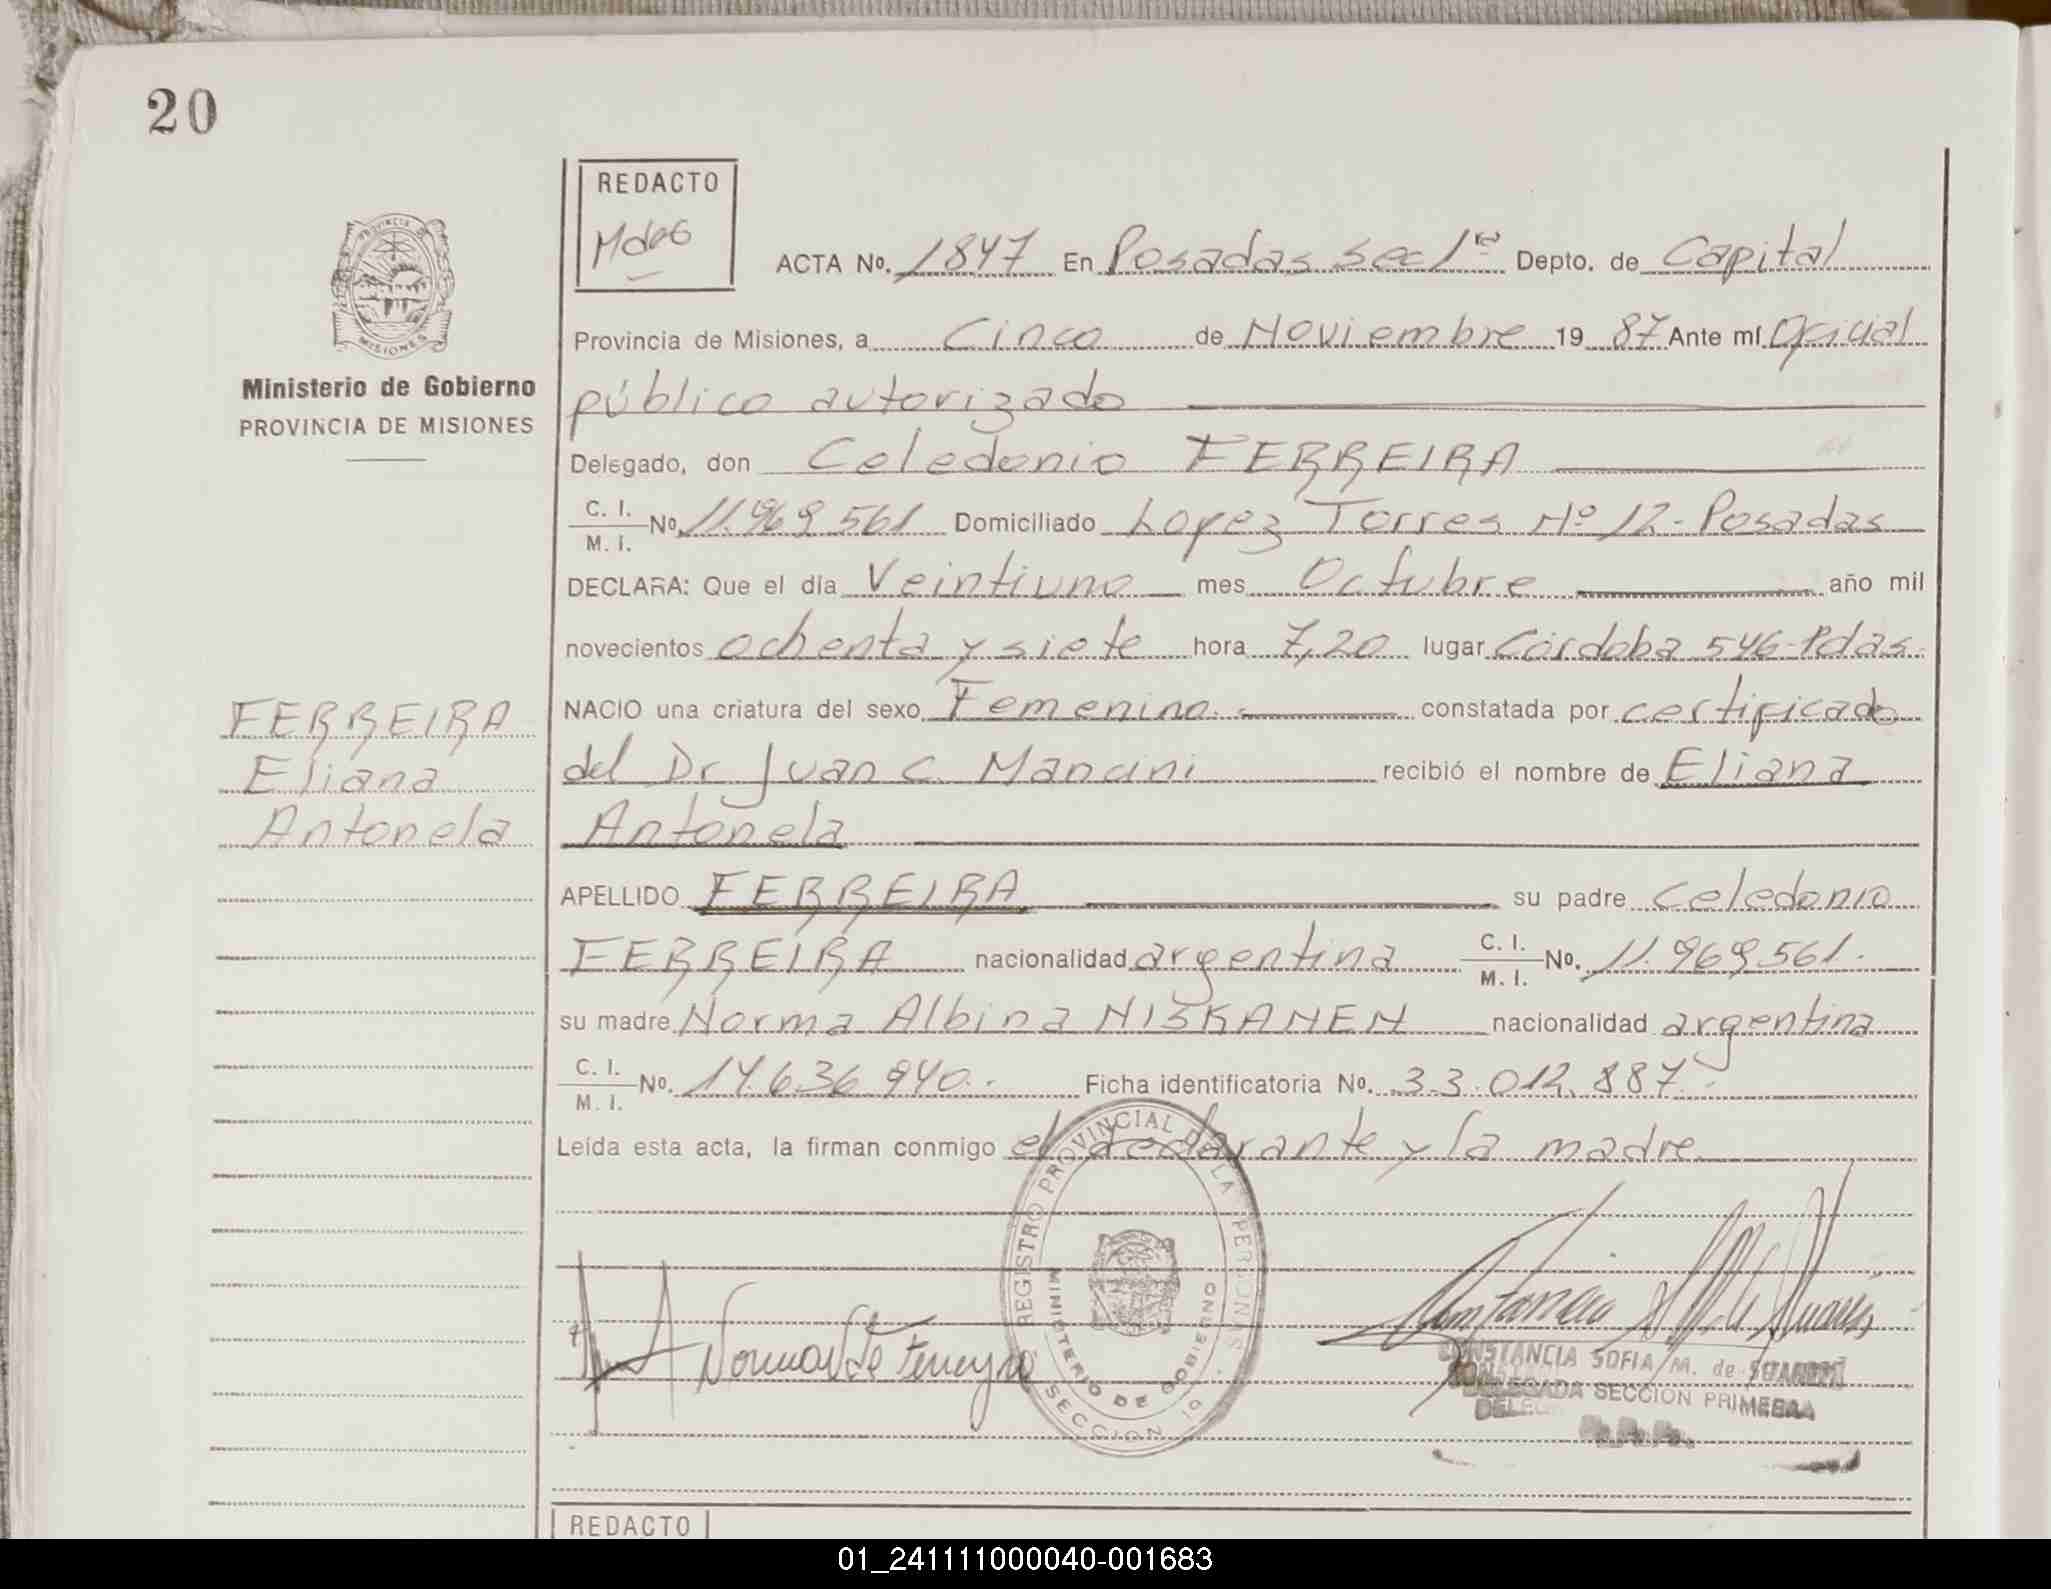 20
REDACTO
MdeG
PROVINCIA DE
MISIONES
Ministerio de Gobierno
PROVINCIA DE MISIONES
ACTA No. 1847 En Posadas sec 1ra Depto. de Capital
Provincia de Misiones, a Cinco de Noviembre 19 87 Ante mí Oficial
público autorizado
Delegado, don Celedonio FERREIRA
C. I.
M. I. No. 11.969.561 Domiciliado Lopez Torres Nº 12 - Posadas
DECLARA: Que el día Veintiuno mes Octubre año mil
novecientos ochenta y siete hora 7,20 lugar Córdoba 546-Pdas.
NACIO una criatura del sexo Femenino.- constatada por certificado
del Dr Juan C. Mancini recibió el nombre de Eliana
Antonela
FERREIRA
Eliana
Antonela
APELLIDO FERREIRA su padre Celedonio
FERREIRA nacionalidad argentina C. I.
M. I. No. 11.969.561.
su madre Norma Albina NISKANEN nacionalidad argentina
C. I.
M. I. No. 14.636.940.- Ficha identificatoria No. 33.012.887.-
Leída esta acta, la firman conmigo el declarante y la madre
REGISTRO PROVINCIAL DE LAS PERSONAS
MINISTERIO DE GOBIERNO
SECCION 1a
Norma de Ferreyra
CONSTANCIA SOFIA M. de
DELEGADA SECCION PRIMERA
REDACTO
01_241111000040-001683